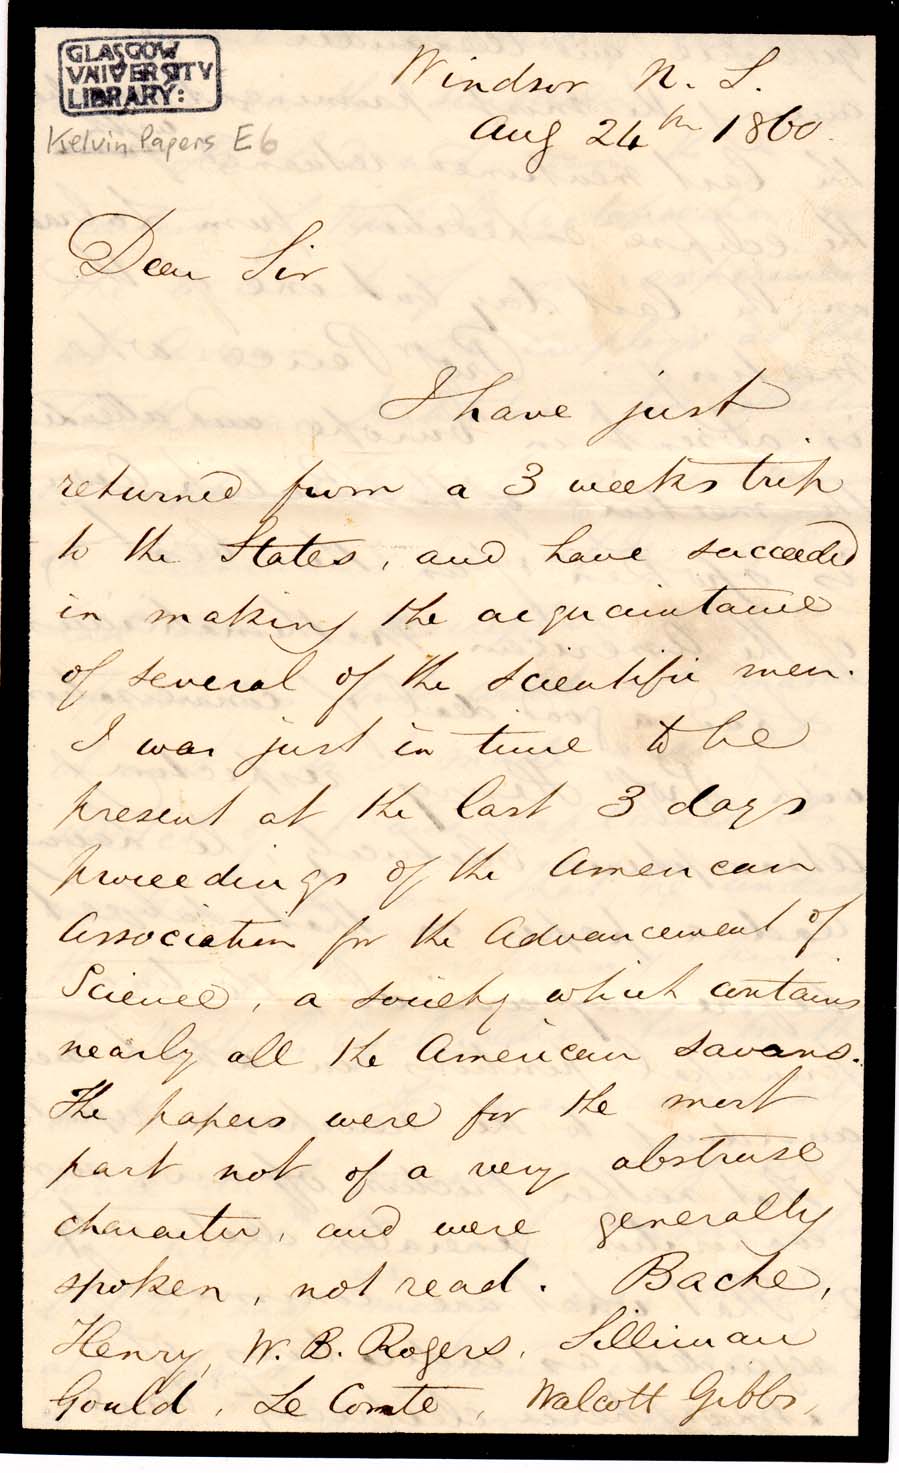 GLASGOW
UNIVERSITY
LIBRARY:
Kelvin Papers E6
Windsor N. S.
Aug 24th 1860.
Dear Sir
I have just
returned from a 3 weeks trip
to the States, and have succeeded
in making the acquaintance
of several of the scientific men.
I was just in time to be
present at the last 3 days
proceedings of the American
Association for the Advancement of
Science, a society which contains
nearly all the American savans.
The papers were for the most
part not of a very abstruse
character, and were generally
spoken, not read. Bache,
Henry, W. B. Rogers, Silliman
Gould, Le Comte, Walcott Gibbs,